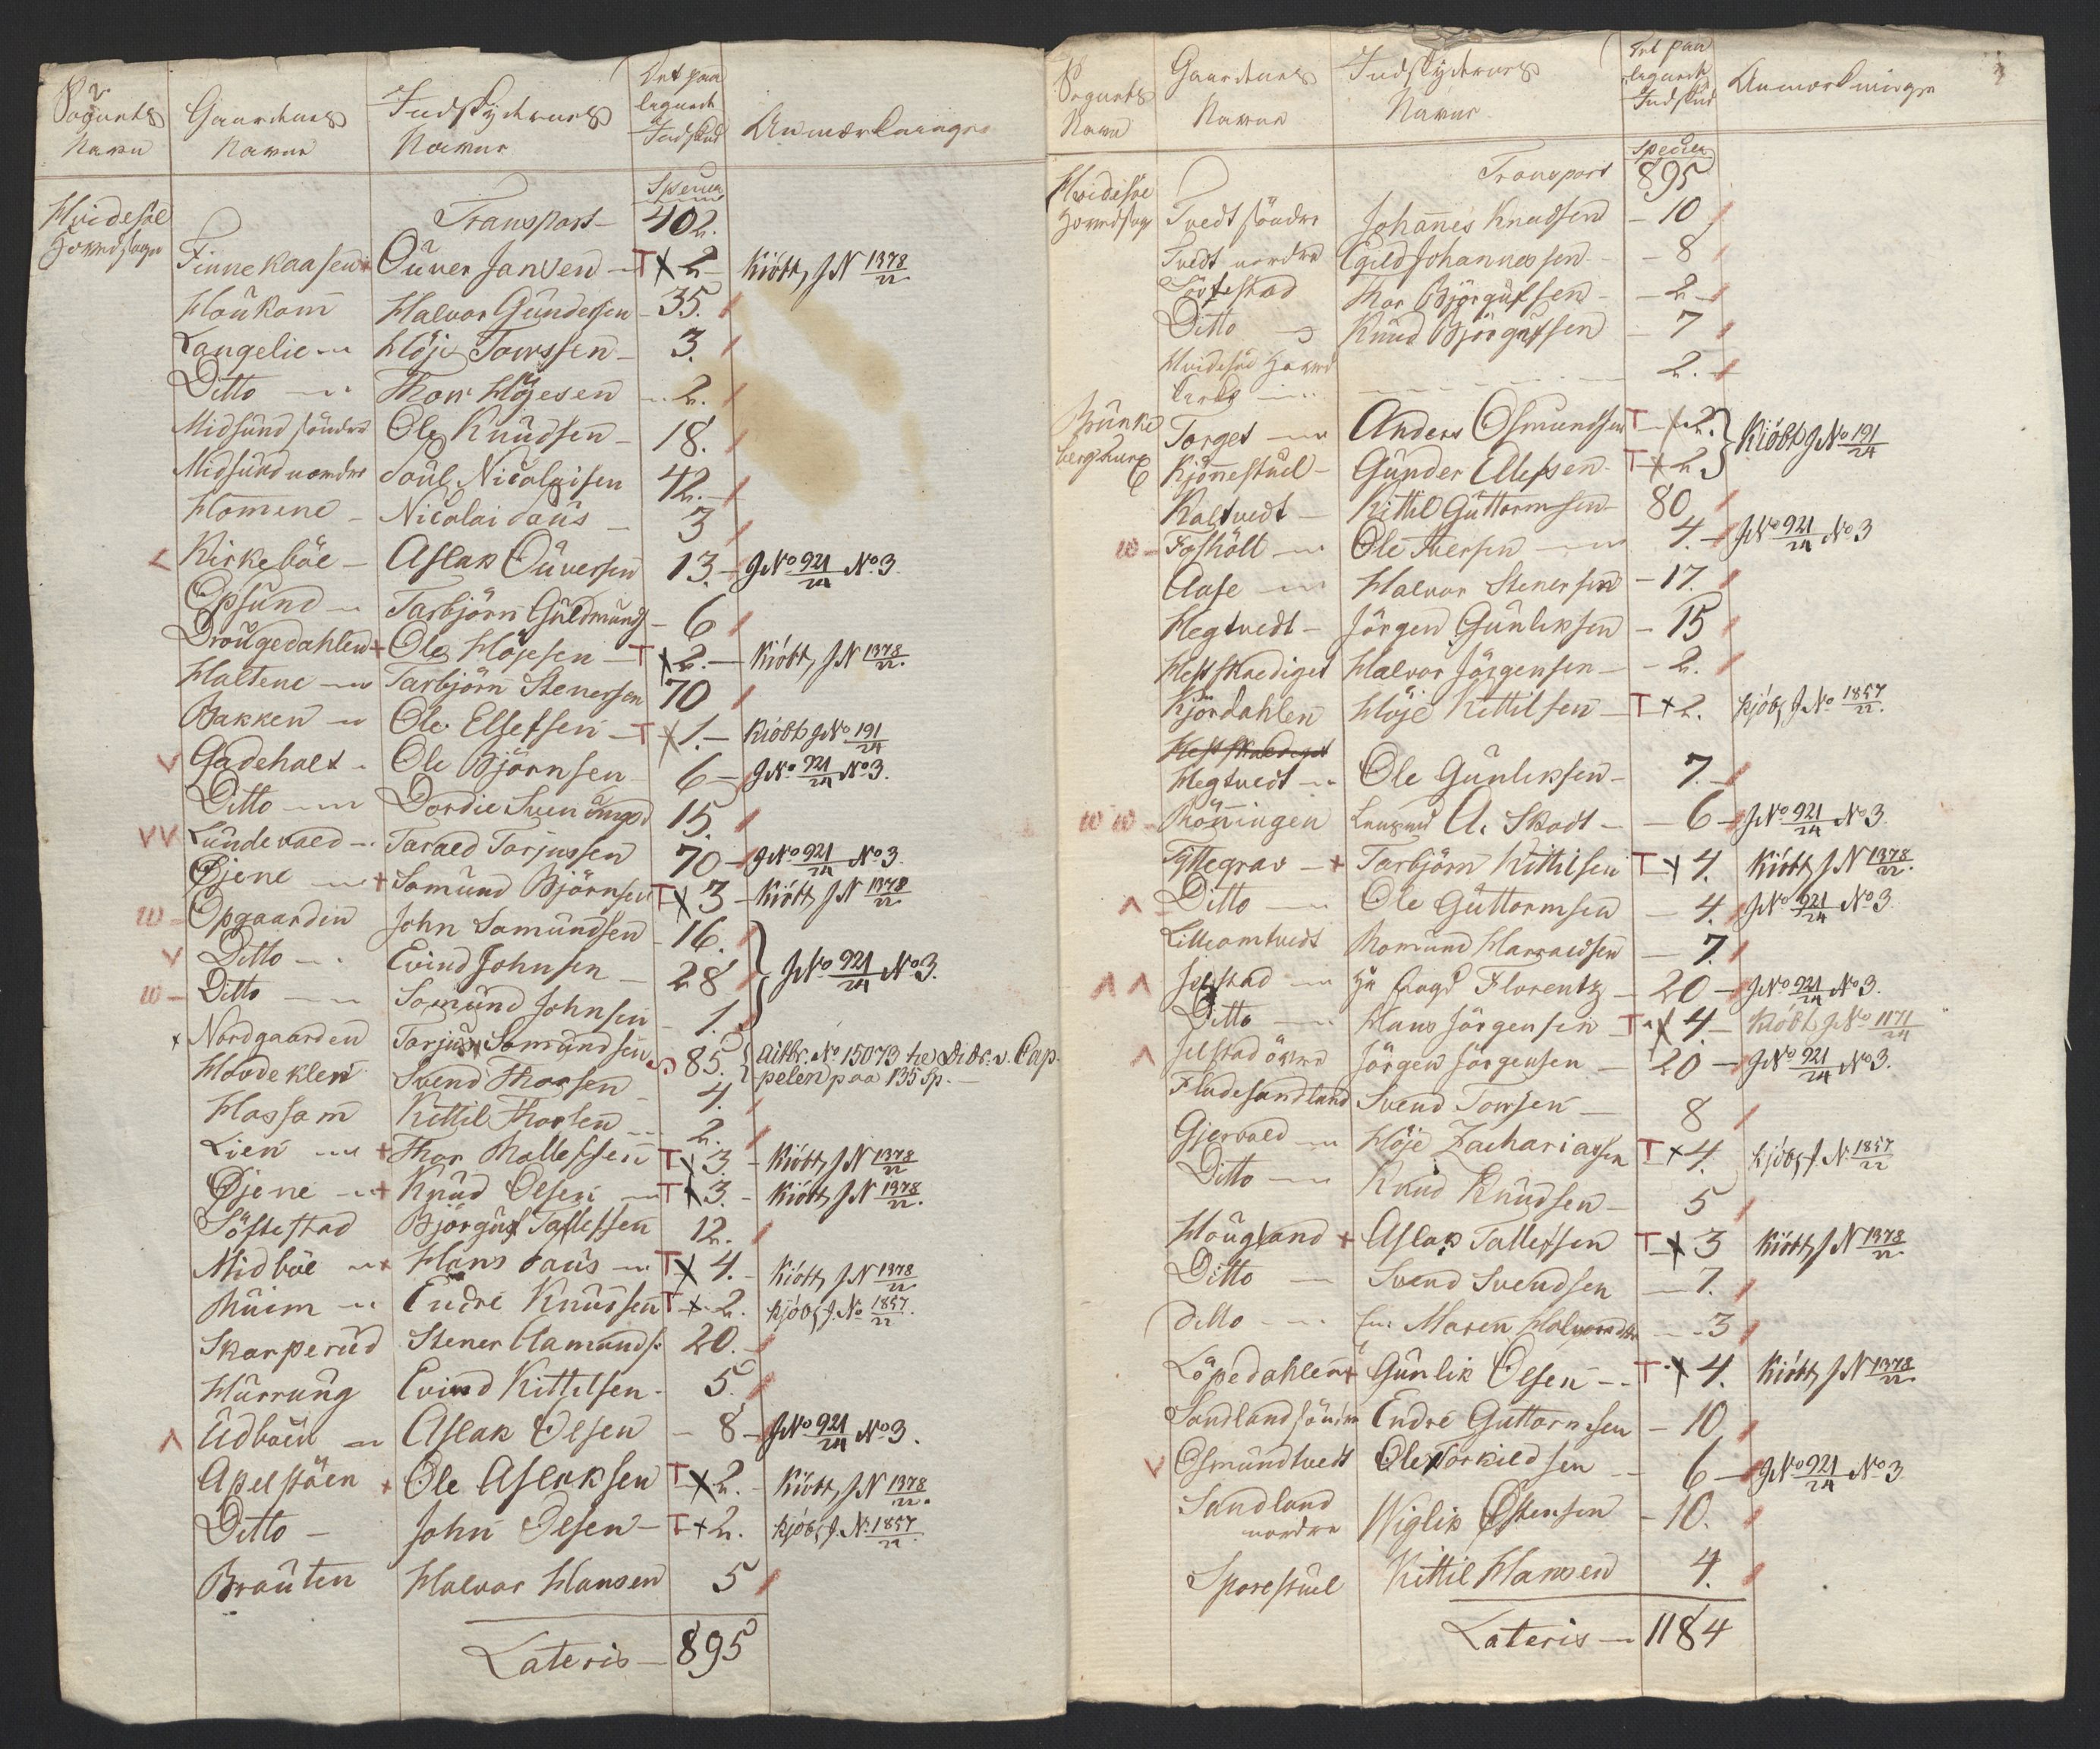 Sognets Navn | Gaardenes Navne | Indskydernes Navne | Det paalignede Indskud | Anmærkninger
Specier
Hvidesøe Hovedsogn | Transport | 402.
Finnekaasen + | Ouver Jansen | T x 2 | Kiöbt, J N 1378/22
Houkom | Halvor Gundersen | 35.
Langelie | Höje Torssen | 3.
Ditto | Thor Höjesen | 2.
Midsund söndre | Ole Knudsen | 18.
Midsund nordre | Poul Nicolaisen | 42.
Homme | Nicolai Paus | 3
Kirkeböe | Aslak Ouversen | 13. | J No 921/24 No 3.
Opsund | Tarbjörn Guldmunds | 6
Drougedahlen + | Ole Höjesen | T x 2. | Kiöbt, J N 1378/22.
Haltene | Tarbjörn Stenersen | 70
Bakken | Ole Ellefsen | T x 1. | Kiöbt J No 191/24
V Gadehalt | Ole Björnsen | 6 | J No 921/24 No 3.
Ditto | Dordie Svenungsd | 15.
VV Lundevald | Tarald Tarjussen | 70 | J No 921/24 No 3.
Öjene + | Somund Björnsen | T x 3 | Kiöbt J N 1378/22.
w Opgaarden | John Somundsen | 16.
V Ditto | Evind Johnsen | 28 | J No 921/24 No 3.
w Ditto | Somund Johnsen | 1.
x Nordgaarden | Tarjus Somundsen | 85. | Aitbr. No 15073 til Didr. v. Cap-
pelen paa 135 Sp.
Hovdeklev | Svend Thorsen | 4.
Hassom | Kittil Thorsen | 2.
Lien + | Thor Rollefsen | T x 3. | Kiöbt, J N 1378/22
Öjene + | Knud Olsen | T x 3. | Kiöbt, J N 1378/22.
Söftestad | Björguf Tallefsen | 12.
Midböe + | Hans Paus | T x 4. | Kiöbt, J N 1378/22
Ruim | Endre Knudsen | T x 2. | kjöbt, J. No 1857/22.
Skarperud | Stener Aamunds: | 20.
Hurrung | Evind Kittilsen | 5.
Udböen | Aslak Olsen | 8 | J No 921/24 No 3.
Apelstöen + | Ole Aslaksen | T x 2. | Kiöbt, J N 1378/22.
Ditto | John Olsen | T x 2. | kjöbt, J. N. 1857/22.
Brauten | Halvor Hansen | 5
Lateris | 895
Sognets Navn | Gaardenes Navne | Indskydernes Navne | Det paalignede Indskud | Anmærkninger
Specier
Hvidesöe Hovedsogn | Transport | 895
Tvedt söndre | Johannes Knudsen | 10
Tvedt nordre | Egild Johannessen | 8
Söftestad | Thor Björgufsen | 2
Ditto | Knud Björgufsen | 7
Hvidesöe Hovedkirke | 2.
Brunkebergs Annex | Torget | Anders Osmundsen | T x 2. | Kiöbt J No 191/24
Kjönnestuel | Gunder Olefsen | T x 2
Kaltvedt | Kittil Guttormsen | 80
w Foshölt | Ole Iversen | 4. | J No 921/24 No 3
Aase | Halvor Stenersen | 17.
Hegtvedt | Jörgen Gunliksen | 15
Hestskrediget | Halvor Jörgensen | 2.
Kjördahlen | Höje Kittilsen | T x 2. | kjöbt, J No 1857/22.
Hestskrediget
Hegtvedt | Ole Gunliksen | 7.
w w Rönningen | A. Skodt | 6 | J No 921/24 No 3
Tyttegrav + | Tarbjörn Kittilsen | T x 4. | Kiöbt, J N 1378/22.
Ditto | Ole Guttormsen | 4. | J No 921/24 No 3
Litleomtvedt | Romund Harraldsen | 7.
Selstad | Hr Fogd Florentz | 20 | J No 921/24 No 3.
Ditto | Hans Jörgensen | T x 4 | Kiöbt J No 1171/24
Selstad övre | Jörgen Jörgensen | 20 | J No 921/24 No 3.
Fladesandland | Svend Torsen | 8
Gjervald | Höje Zachariassen | T x 4. | kjöbt, J. N. 1857/22
Ditto | Knud Knudsen | 5
Hougland + | Aslak Tallefsen | T x 3 | Kiöbt, J N 1378/22.
Ditto | Svend Svendsen | 7.
Ditto | Maren Halvorsdtr | 3
Löpedahlen + | Gunlik Olsen | T x 4. | Kiöbt, J N 1378/22.
Sandland söndre | Endre Guttormsen | 10
V Osmundtvedt | Ole Torkildsen | 6 | J No 921/24 No 3
Sandland nordre | Wiglik Östensen | 10.
Sporestuel | Kittil Hansen | 4.
Lateris | 1184